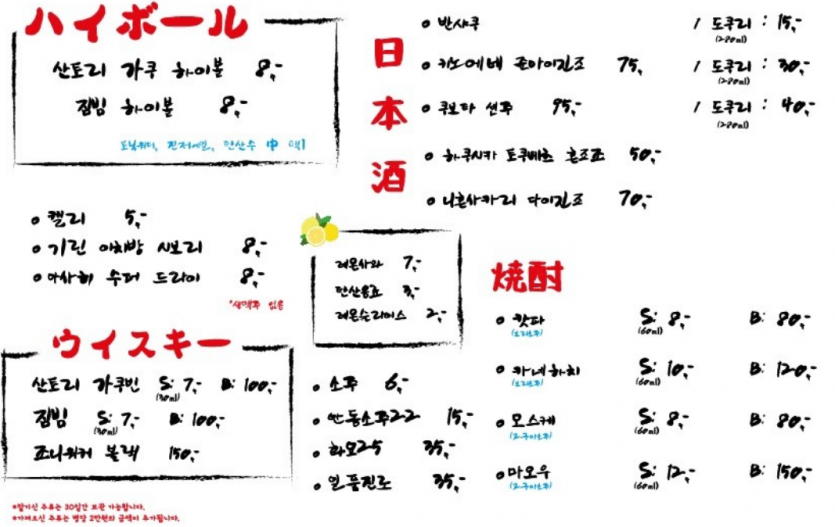 ハイボール
산토리 가쿠 하이볼 8,-
짐빔 하이볼 8,-
토닉워터, 진저에일, 탄산수 中 택1
켈리 5,-
기린 이치방 시보리 8,-
아사히 수퍼 드라이 8,-
*생맥주 있음
ウイスキー
산토리 가쿠빈 S: 7,- B: 100,-
(30ml)
짐빔 S: 7,- B: 100,-
(30ml)
조니워커 블랙 150,-
*맡기신 주류는 30일간 보관 가능합니다.
*가져오신 주류는 병당 2만원의 금액이 추가됩니다.
레몬사와 7,-
탄산음료 3,-
레몬슬라이스 2,-
소주 6,-
안동소주22 15,-
화요25 35,-
일품진로 35,-
日本酒
반샤쿠 / 도쿠리 : 15,-
키노에네 준마이긴죠 75, / 도쿠리 : 30,-
쿠보타 센쥬 95,- / 도쿠리 : 40,-
하쿠시카 토쿠베츠 혼죠조 50,-
니혼사카리 다이긴죠 70,-
焼酎
핫타 S: 8,- B: 80,-
(보리소주) (60ml)
카네하치 S: 10,- B: 120,-
(보리소주) (60ml)
모스케 S: 8,- B: 80,-
(고구마소주) (60ml)
마오우 S: 12,- B: 150,-
(고구마소주) (60ml)